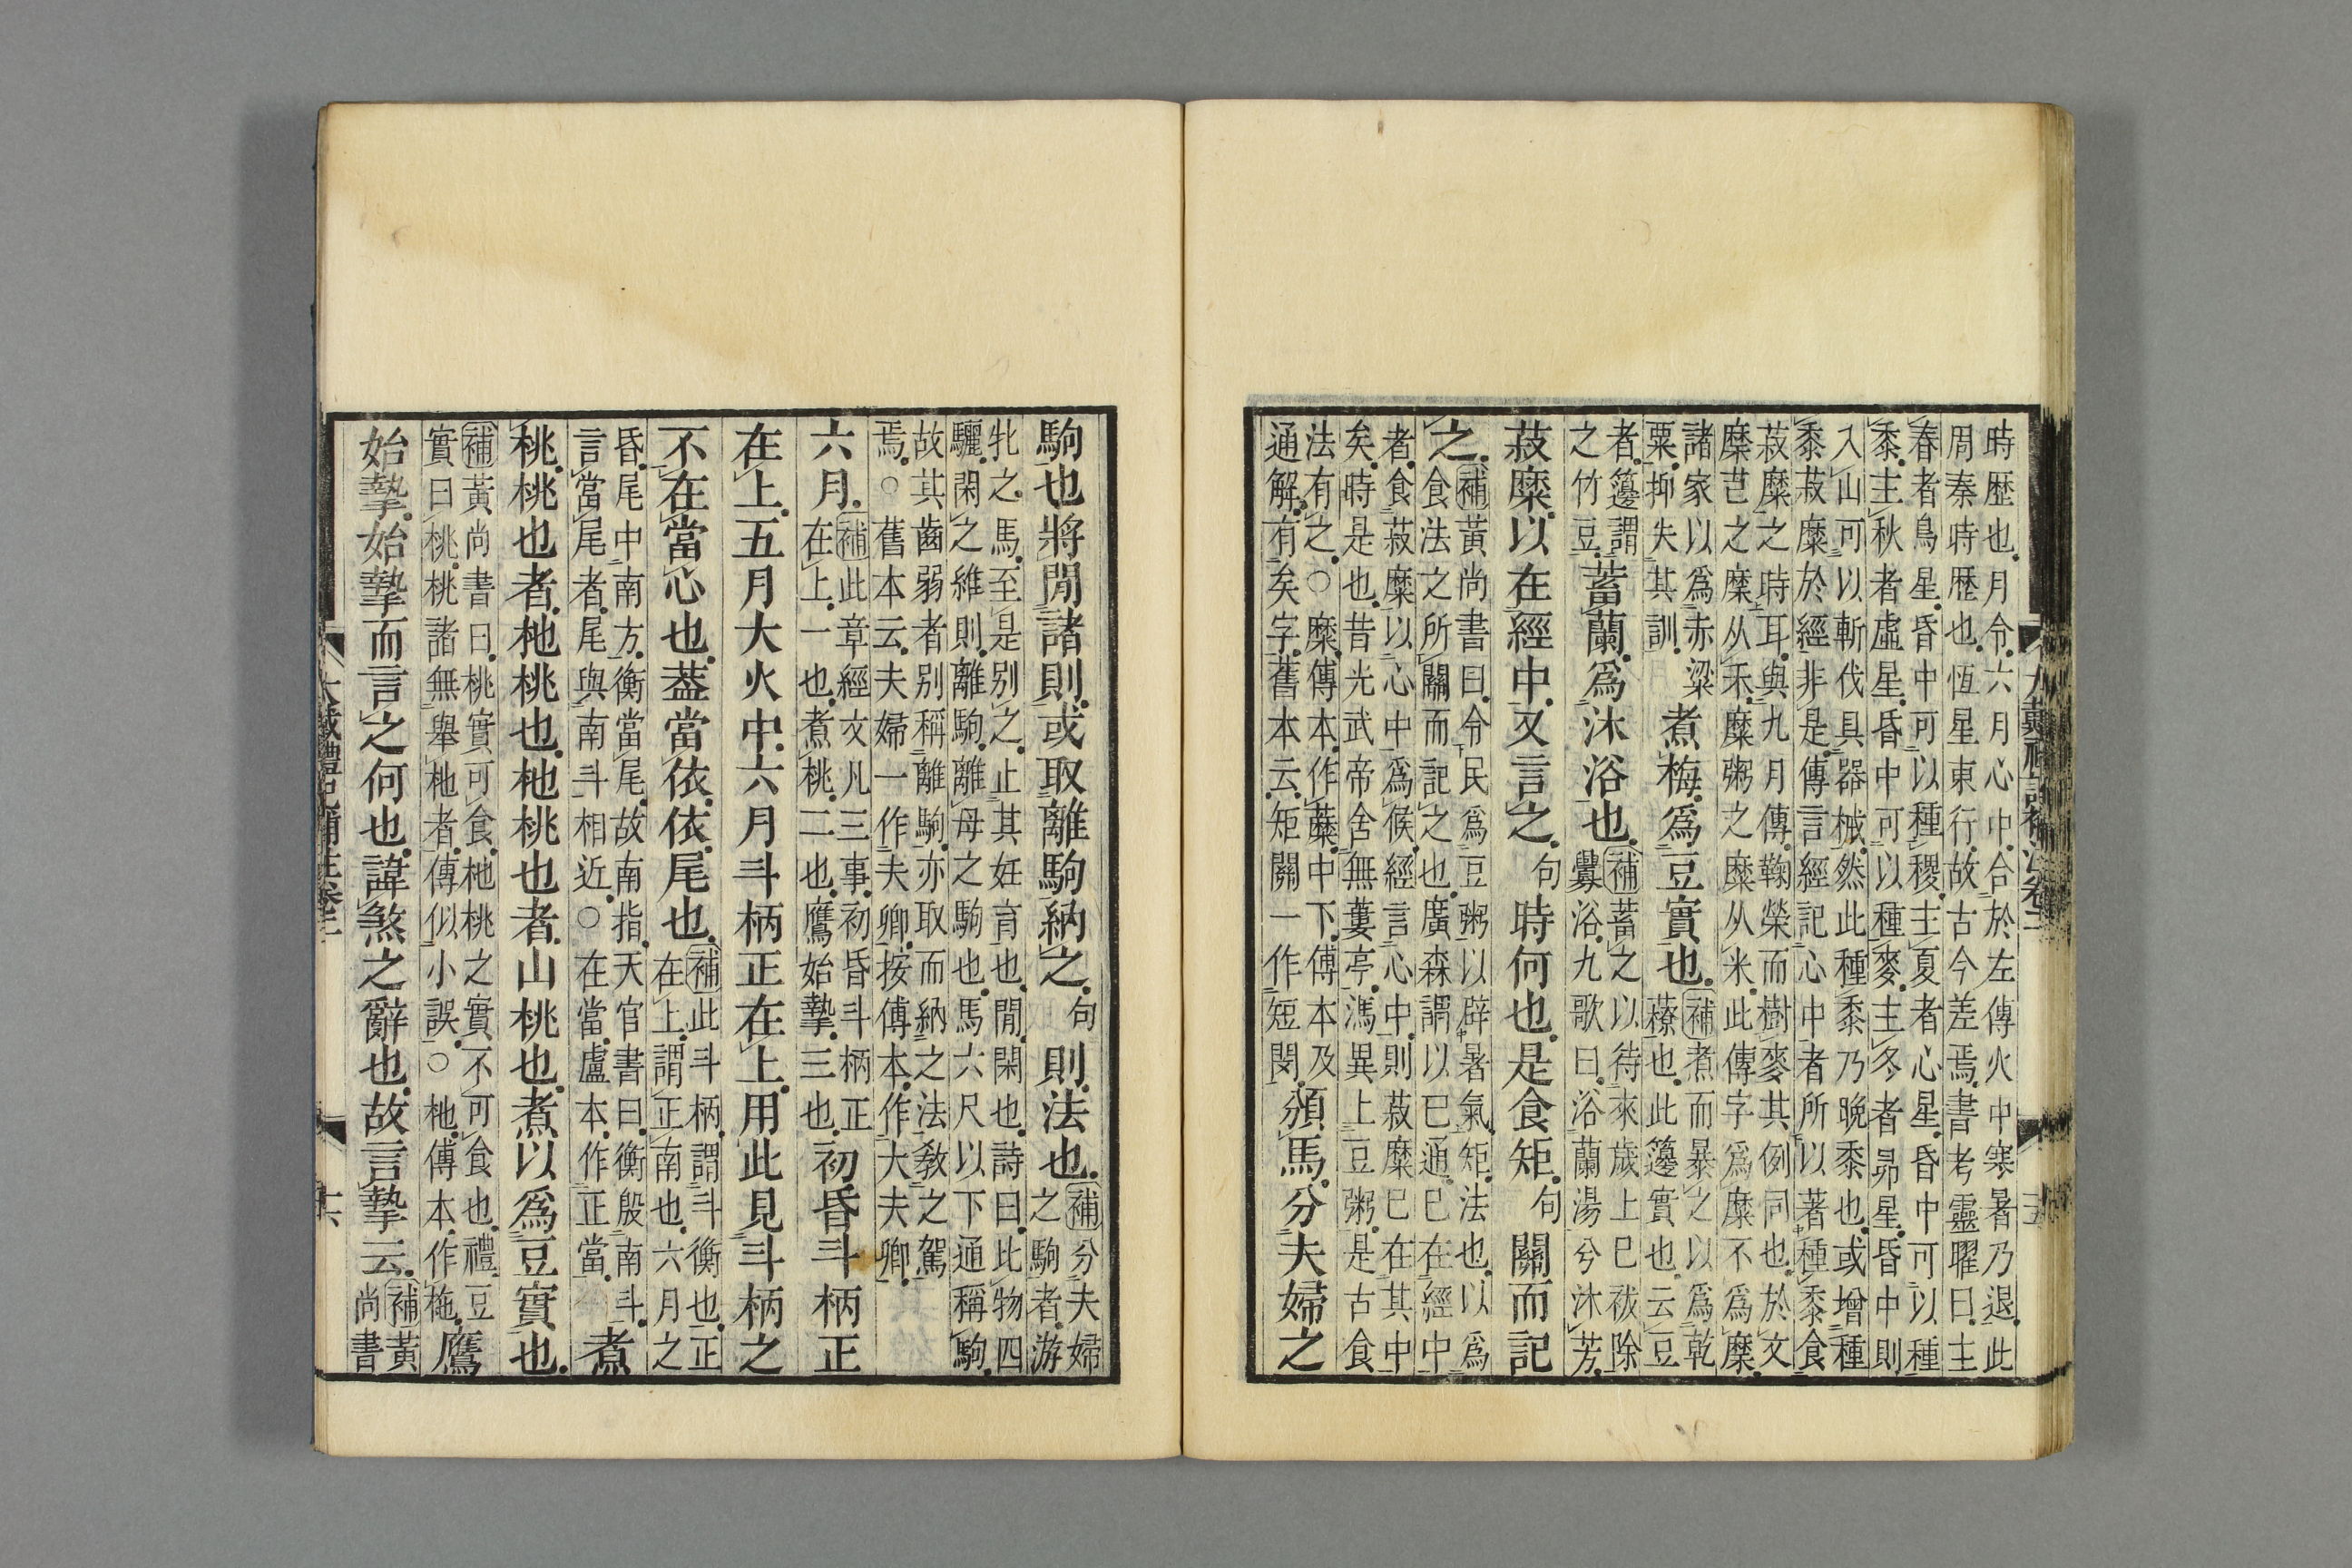 時歴也。月令。六月心中。合於左傳火中寒暑乃退。此
周秦時歴也。恆星東行。故古今差焉。書考靈曜曰。主
春者鳥星。昏中可以種稷。主夏者心星。昏中可以種
黍。主秋者虛星。昏中可以種麥。主冬者昴星。昏中則
入山可以斬伐具器械。然此種黍乃晚黍也。或增種
黍菽糜於經非是。傳言經記心中者。所以著種黍食
菽糜之時耳。與九月傳鞠榮而樹麥其例同也。於文
糜芑之糜从禾。糜粥之糜从米。此傳字爲糜不爲糜。
諸家以爲赤粱
粟。抑失其訓。
煮梅。爲豆實也。
補煮而暴之以爲乾
䕩也。此籩實也。云豆
者。籩謂
之竹豆。
蓄蘭。爲沐浴也。
補蓄之以待來歲上巳祓除
釁浴。九歌曰。浴蘭湯兮沐芳。
菽糜。以在經中。又言之。句時何也。是食矩。句關而記
之。
補黃尚書曰。令民爲豆粥以辟暑氣。矩。法也。以爲
食法之所關而記之也。廣森謂以已通。已在經中
者。食菽糜以心中爲候。經言心中。則菽糜已在其中
矣。時是也。昔光武帝舍無蔞亭。馮異上豆粥。是古食
法有之。○糜。傳本。作蘪。中下。傳本及
通解。有矣字。舊本云。矩關一作短閔。
頒馬。分夫婦之
駒也。將閒諸則。或取離駒納之。句則。法也。
補分夫婦
之駒者。游
牝之馬。至是別之。止其妊育也。閒。閑也。詩曰。比物四
驪。閑之維則。離駒。離母之駒也。馬六尺以下通稱駒。
故其齒弱者別稱離駒。亦取而納之法敎之駕
焉。○舊本云。夫婦一作夫卿。按傳本。作大夫卿。
六月。
補此章經文凡三事。初昏斗柄正
在上。一也。煮桃。二也。鷹始摯。三也。
初昏斗柄正
在上。五月大火中。六月斗柄正在上。用此見斗柄之
不在當心也。葢當依。依。尾也。
補此斗柄。謂斗衡也。正
在上。謂正南也。六月之
昏。尾中南方。衡當尾。故南指。天官書曰。衡殷南斗。
言當尾者。尾與南斗相近。○在當。盧本。作正當。
煮
桃。桃也者。杝桃也。杝桃也者。山桃也。煮以爲豆實也。
補黃尚書曰。桃實可食。杝桃之實。不可食也。禮。豆
實曰桃。桃諸無舉杝者。傳似小誤。○杝。傳本。作柂。
鷹
始摯。始摯而言之何也。諱煞之辭也。故言摯云。
補黃
尚書